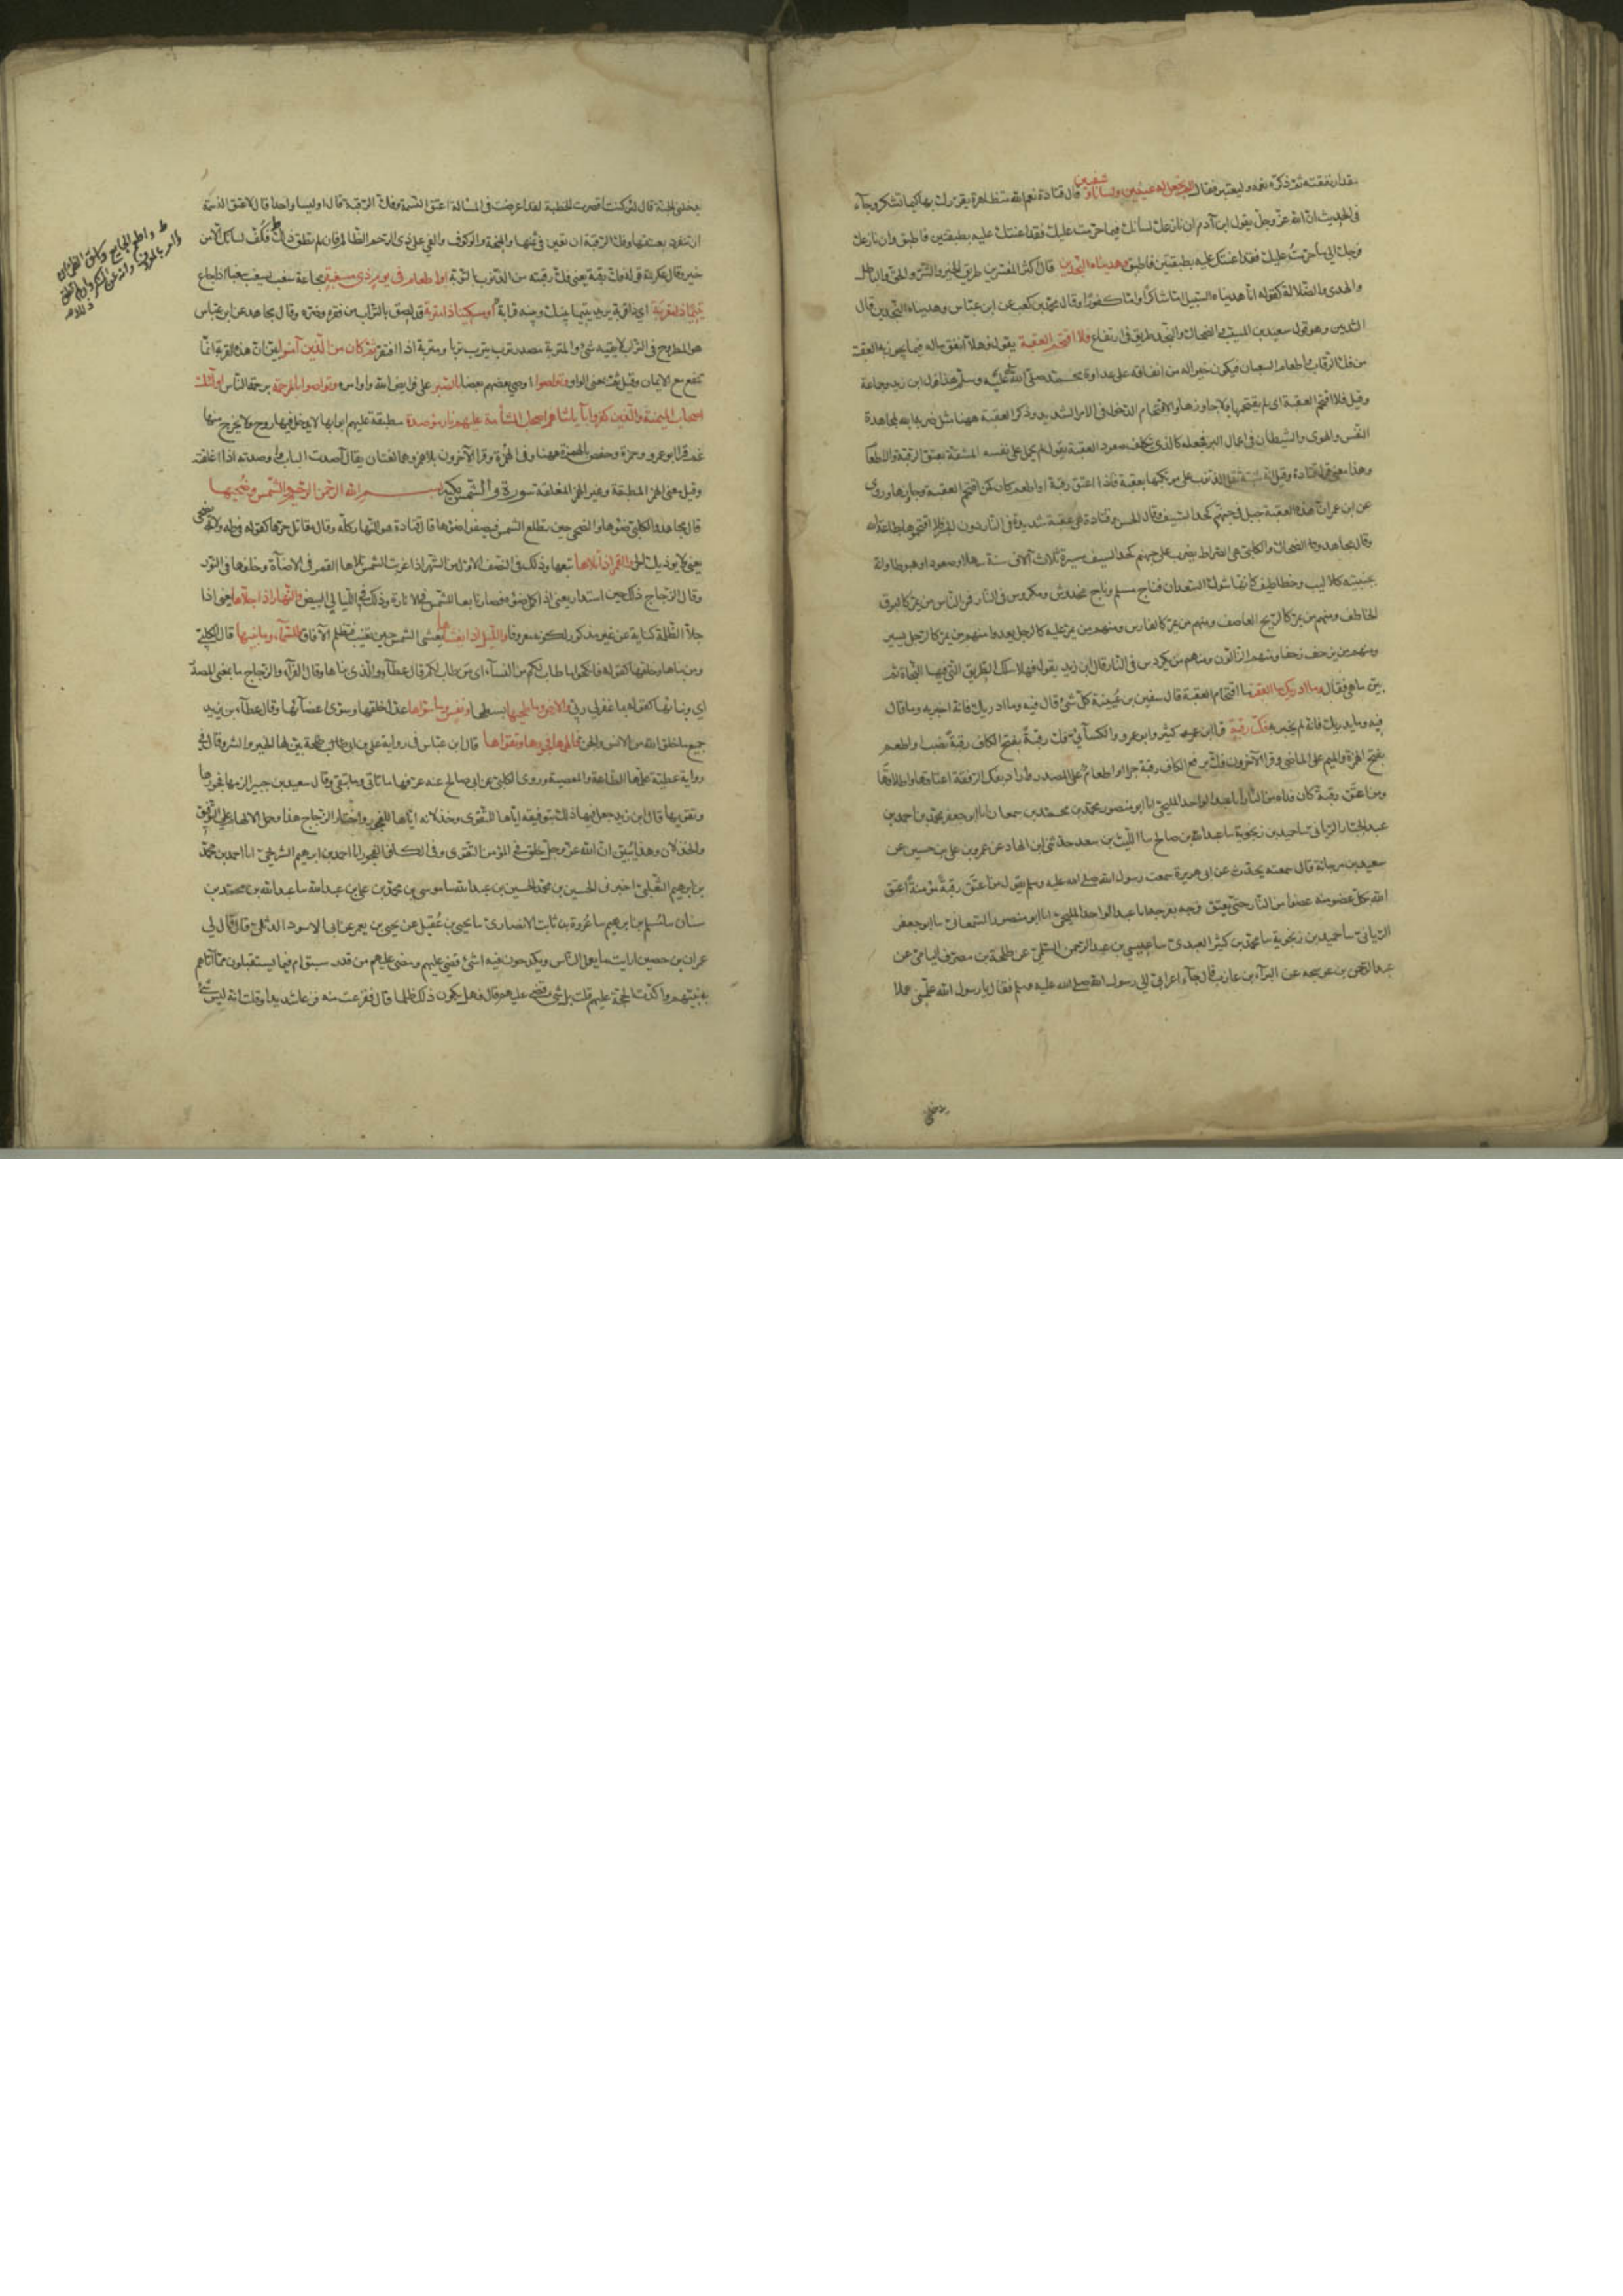 بمقدار نفقته ثم ذكره نعمه ليعتبر فقال الم نجعل له عينين ولسانا وشفتين قال قتادة نعم الله متظاهرة يقررك بها كيما تشكر وجاء
في الحديث ان الله عز وجل يقول ابن آدم ان نازعك لسانك فيما حرمت عليك فقد اعنتك عليه بطبقتين فاطبق وان نازعك
فرجك الى ما حرمت عليك فقد اعنتك عليه بطبقتين فاطبق وهديناه النجدين قال اكثر المفسرين طريق الخير والشر والحق والباطل
والهدى والضلالة كقوله انا هديناه السبيل اما شاكرا واما كفورا وقال محمد بن كعب عن ابن عباس وهديناه النجدين قال
الثديين وهو قول سعيد بن المسيب والضحاك والنجد طريق في ارتفاع فلا اقتحم العقبة يقول فهلا انفق ماله فيما يجوز به العقبة
من فك الرقاب واطعام السغبان فيكون خيرا له من انفاقه على عداوة محمد صلى الله عليه وسلم هذا قول ابن زيد وجماعة
وقيل فلا اقتحم العقبة اي لم يقتحمها ولا جاوزها والاقتحام الدخول في الامر الشديد وذكر العقبة ههنا مثل ضربه الله لمجاهدة
النفس والهوى والشيطان في اعمال البر فجعله كالذي يتكلف صعود العقبة يقول لم يحمل على نفسه المشقة بعتق الرقبة والاطعام
وهذا معنى قول قتادة وقيل انه شبه ثقل الذنوب على مرتكبها بعقبة فاذا اعتق رقبة او اطعم كان كمن اقتحم العقبة وجاوزها وروي
عن ابن عمر ان هذه العقبة جبل في جهنم وقال الحسن وقتادة هي عقبة شديدة في النار دون الجسر فاقتحموها بطاعة الله
وقال مجاهد والضحاك والكلبي هي الصراط يضرب على جهنم كحد السيف مسيرة ثلاث آلاف سنة سهلا وصعودا وهبوطا وان
بجنبتيه كلاليب وخطاطيف كانها شوك السعدان فناج مسلم وناج مخدوش ومكردس في النار فمن الناس من يمر كالبرق
الخاطف ومنهم من يمر كالريح العاصف ومنهم من يمر كالفارس ومنهم من يمر عليه كالرجل يعدو ومنهم من يمر كالرجل يسير
ومنهم من يزحف زحفا ومنهم الزالون ومنهم من يكردس في النار قال ابن زيد يقول فهلا سلك الطريق التي فيها النجاة ثم
بين ما هي فقال وما ادريك ما العقبة ما اقتحام العقبة قال سفين بن عيينة كل شئ قال فيه وما ادريك فانه اخبر به وما قال
فيه وما يدريك فانه لم يخبر به فك رقبة قرا ابن كثير وابو عمرو والكسائي فك بفتح الكاف رقبة نصبا واطعم
بفتح الهمزة والميم على الماضي وقرا الآخرون فك برفع الكاف رقبة جرا او اطعام على المصدر واراد بفك الرقبة اعتاقها واطلاقها
ومن اعتق رقبة كان فداه من النار انا عبد الواحد المليحي انا ابو منصور محمد بن محمد بن سمعان انا ابو جعفر محمد بن احمد بن
عبد الجبار الرياني نا حميد بن زنجوية نا عبد الله بن صالح نا الليث بن سعد حدثني ابن الهاد عن عمر بن علي بن حسين عن
سعيد بن مرجانة قال سمعته يحدث عن ابي هريرة سمعت رسول الله صلى الله عليه وسلم يقول من اعتق رقبة مؤمنة اعتق
الله بكل عضو منه عضوا من النار حتى يعتق فرجه بفرجه انا عبد الواحد المليحي انا ابو منصور السمعاني نا ابو جعفر
الرياني نا حميد بن زنجوية نا محمد بن كثير العبدي نا عيسى بن عبد الرحمن السلمي عن طلحة بن مصرف اليامي عن
عبد الرحمن بن عوسجه عن البراء بن عازب قال جاء اعرابي الى رسول الله صلى الله عليه وسلم فقال يا رسول الله علمني عملا
يدخلني
يدخلني الجنة قال لئن كنت اقصرت الخطبة لقد اعرضت في المسالة اعتق النسمة وفك الرقبة قال اوليسا واحدا قال لا عتق النسمة
ان تنفرد بعتقها وفك الرقبة ان تعين في ثمنها والمنحة والوكوف والفئ على ذي الرحم الظالم فان لم تطق ذلك فكف لسانك الا من
ط واطعم الجايع واسق الظمآن
وامر بالمعروف وانه عن المنكر فان لم تطق
ذلك
خير وقال عكرمة قوله فك رقبة يعني فك رقبته من الذنوب بالتوبة او اطعام في يوم ذي مسغبة مجاعة سغب يسغب سغبا اذا جاع
يتيما ذا مقربة اي ذا قرابة يريد يتيما بينك وبينه قرابة او مسكينا ذا متربة قد لصق بالتراب من فقره وضره وقال مجاهد عن ابن عباس
هو المطروح في التراب لا يقيه شئ والمتربة مصدر ترب يترب تربا ومتربة اذا افتقر ثم كان من الذين آمنوا بين ان هذه القرب انما
تنفع مع الايمان وقيل ثم بمعنى الواو وتواصوا اوصى بعضهم بعضا بالصبر على فرايض الله واوامره وتواصوا بالمرحمة برحمة الناس اولئك
اصحاب الميمنة والذين كفروا بآياتنا هم اصحاب المشأمة عليهم نار مؤصدة مطبقة عليهم ابوابها لا يدخل فيها روح ولا يخرج منها
غم قرا ابو عمرو وحمزة وحفص بالهمزة ههنا وفي الهمزة وقرا الآخرون بلا همز وهما لغتان يقال آصدت الباب واوصدته اذا اغلقته
وقيل معنى الهمز المطبقة وغير الهمز المغلقة سورة والشمس مكية بسم الله الرحمن الرحيم والشمس وضحيها
قال مجاهد والكلبي ضوءها والضحى حين تطلع الشمس فيصفو ضوءها قال قتادة هو النهار كله وقال مقاتل حرها كقوله في طه ولا تضحى
يعني لا يؤذيك الحر والقمر اذا تلاها تبعها وذلك في النصف الاول من الشهر اذا غربت الشمس تلاها القمر في الاضاءة وخلفها في النور
وقال الزجاج وذلك حين استدار يعني اذا كمل ضوءه فصار تابعا للشمس في الانارة وذلك في الليالي البيض والنهار اذا جلاها يعني اذا
جلا الظلمة كناية عن غير مذكور لكونه معروفا والليل اذا يغشاها يغشى الشمس حين تغيب فتظلم الآفاق والسماء وما بنيها قال الكلبي
ومن بناها وخلقها كقوله فانكحوا ما طاب لكم من النساء اي من طاب لكم قال عطاء والذي بناها وقال الفراء والزجاج ما بمعنى المصدر
اي وبنائها كقوله بما غفر لي ربي والارض وما طحيها بسطها ونفس وما سواها عدل خلقها وسوى اعضائها وقال عطاء يريد
جميع ما خلق الله من الانس والجن فالهمها فجورها وتقواها قال ابن عباس في رواية علي بن ابي طلحة بين لها الخير والشر وقال في
رواية عطية علمها الطاعة والمعصية وروى الكلبي عن ابي صالح عنه عرفها ما تاتي وما تتقي وقال سعيد بن جبير الزمها فجورها
وتقويها قال ابن زيد جعل فيها ذلك بتوفيقه اياها للتقوى وخذلانه اياها للفجور واختار الزجاج هذا وحمل الالهام على التوفيق
والخذلان وهذا يبين ان الله عز وجل يخلق في المؤمن التقوى وفي الكافر الفجور انا احمد بن ابرهيم الشريحي انا احمد بن محمد
بن ابرهيم الثعلبي اخبرني الحسين بن محمد بن الحسين بن عبد الله نا موسى بن محمد بن علي بن عبد الله نا عبد الله بن محمد بن
سنان نا مسلم بن ابرهيم نا عزرة بن ثابت الانصاري نا يحيى بن عقيل عن يحيى بن يعمر عن ابي الاسود الدئلي قال قال لي
عمران بن حصين ارايت ما يعمل الناس ويكدحون فيه اشئ قضي عليهم ومضى عليهم من قدر سبق ام فيما يستقبلون مما آتاهم
به نبيهم واكدت الحجة عليهم قلت بل شئ قضي عليهم قال فهل يكون ذلك ظلما قال ففزعت منه فزعا شديدا وقلت انه ليس شئ